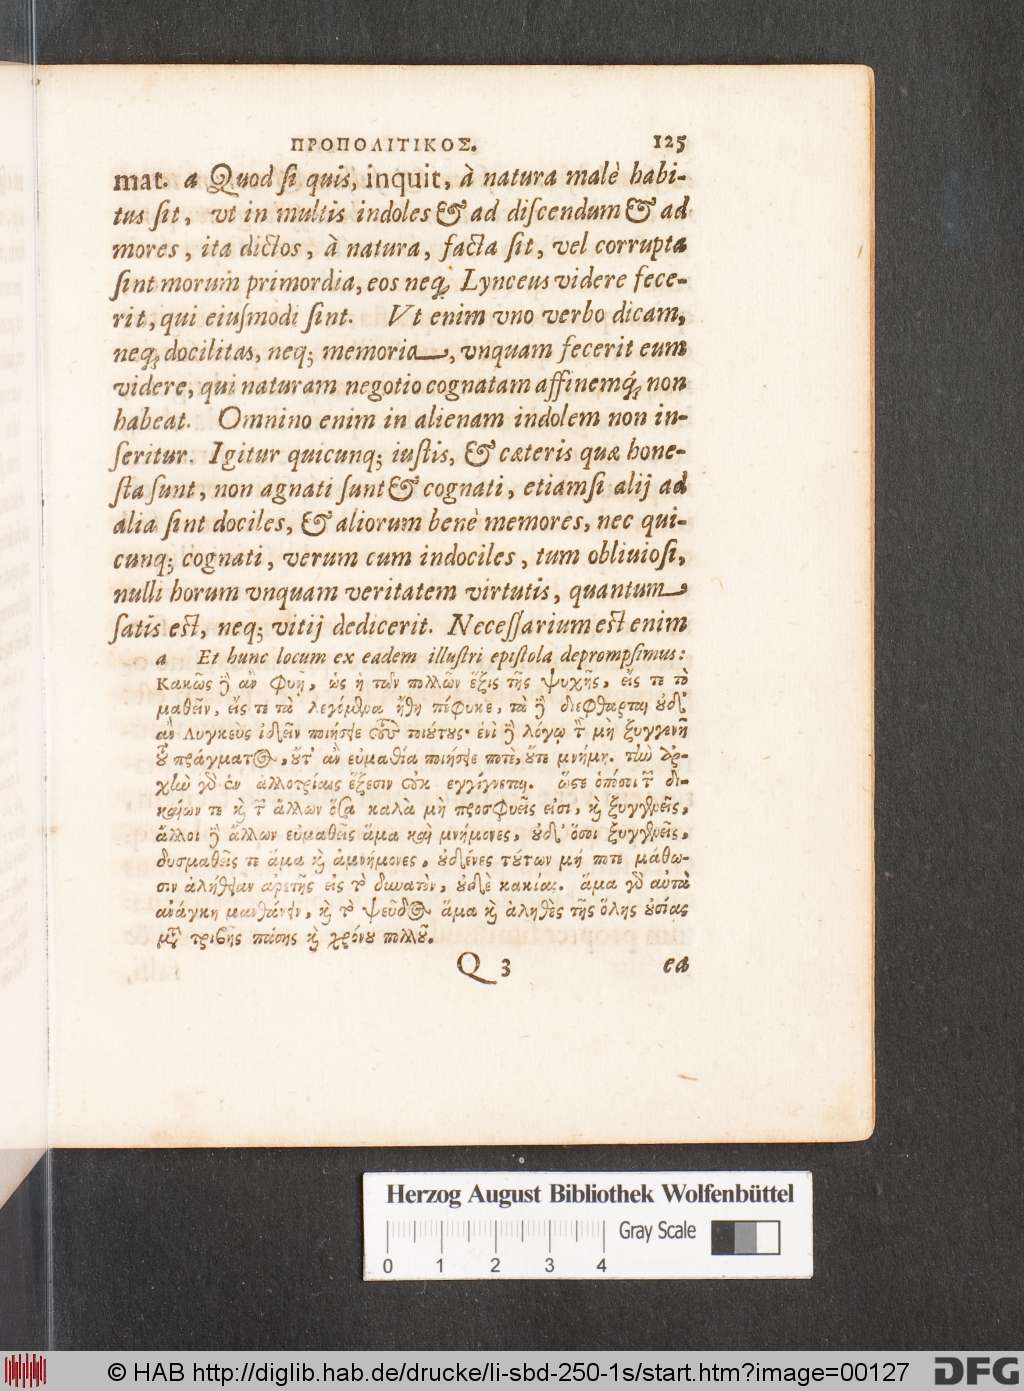 ΠΡΟΠΟΛΙΤΙΚΟΣ. 125
mat. a Quod ſi quis, inquit, à natura malè habi-
tus ſit, vt in multis indoles & ad diſcendum & ad
mores, ita dictos, à natura, facta ſit, vel corrupta
ſint morum primordia, eos neq; Lynceus videre fece-
rit, qui eiuſmodi ſint. Vt enim vno verbo dicam,
neq; docilitas, neq; memoria, vnquam fecerit eum
videre, qui naturam negotio cognatam affinemq́; non
habeat. Omnino enim in alienam indolem non in-
ſeritur. Igitur quicunq; iuſtis, & cæteris quæ hone-
ſta ſunt, non agnati ſunt & cognati, etiamſi alij ad
alia ſint dociles, & aliorum benè memores, nec qui-
cunq; cognati, verum cum indociles, tum obliuioſi,
nulli horum vnquam veritatem virtutis, quantum
ſatis est, neq; vitij dedicerit. Neceſſarium est enim
a Et hunc locum ex eadem illuſtri epiſtola deprompſimus:
Κακῶς ἢ ἂν φυῇ, ὡς ἡ τῶν πολλῶν ἕξις τῆς ψυχῆς, εἴς τε τὸ
μαθεῖν, εἴς τε τὰ λεγόμενα ἤθη πέφυκε, τὰ ἢ διέφθαρται, οὐδ'
ἂν Λυγκεὺς ἰδεῖν ποιήσειε τοὺς τοιούτους· ἑνὶ δὲ λόγῳ τὸν μὴ ξυγγενῆ
τοῦ πράγματος, οὔτ' ἂν εὐμαθία ποιήσειε ποτὲ, οὔτε μνήμη. τὴν ἀρ-
χὴν γὰρ ἐν ἀλλοτρίαις ἕξεσιν οὐκ ἐγγίγνεται. ὥστε ὁπόσοι τῶν δι-
καίων τε καὶ τῶν ἄλλων ὅσα καλὰ μὴ προσφυεῖς εἰσι, καὶ ξυγγενεῖς,
ἄλλοι δὲ ἄλλων εὐμαθεῖς ἅμα καὶ μνήμονες, οὐδ' ὅσοι ξυγγενεῖς,
δυσμαθεῖς τε ἅμα καὶ ἀμνήμονες, οὐδένες τούτων μή ποτε μάθω-
σιν ἀλήθειαν ἀρετῆς εἰς τὸ δυνατὸν, οὐδὲ κακίας. ἅμα γὰρ αὐτὰ
ἀνάγκη μανθάνειν, καὶ τὸ ψεῦδος ἅμα καὶ ἀληθὲς τῆς ὅλης οὐσίας
μετὰ τριβῆς πάσης καὶ χρόνου πολλοῦ.
Q 3 ea
Herzog August Bibliothek Wolfenbüttel
Gray Scale
0 1 2 3 4
© HAB http://diglib.hab.de/drucke/li-sbd-250-1s/start.htm?image=00127 DFG